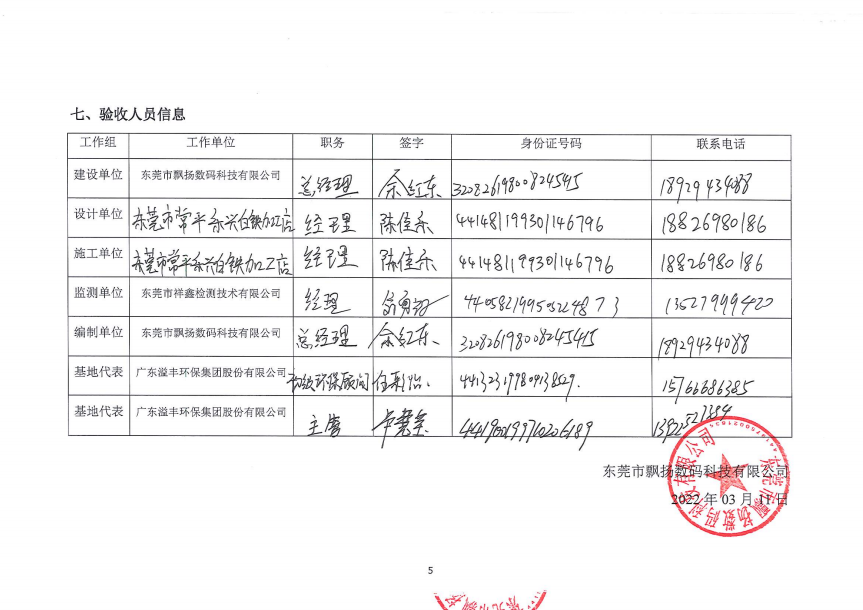 七、验收人员信息
工作组 工作单位 职务 签字 身份证号码 联系电话
建设单位 东莞市飘扬数码科技有限公司 总经理 余红东 18929434088
设计单位 东莞市常平永兴白铁加工店 经理 陈佳乐 441481199301146796 18826980186
施工单位 东莞市常平永兴白铁加工店 经理 陈佳乐 441481199301146796 18826980186
监测单位 东莞市祥鑫检测技术有限公司 经理 13527999420
编制单位 东莞市飘扬数码科技有限公司 总经理 余红东 18929434088
基地代表 广东溢丰环保集团股份有限公司 环保顾问 15766686385
基地代表 广东溢丰环保集团股份有限公司 主管
东莞市飘扬数码科技有限公司
2022 年 03 月 11 日
东莞市飘扬数码科技有限公司
5